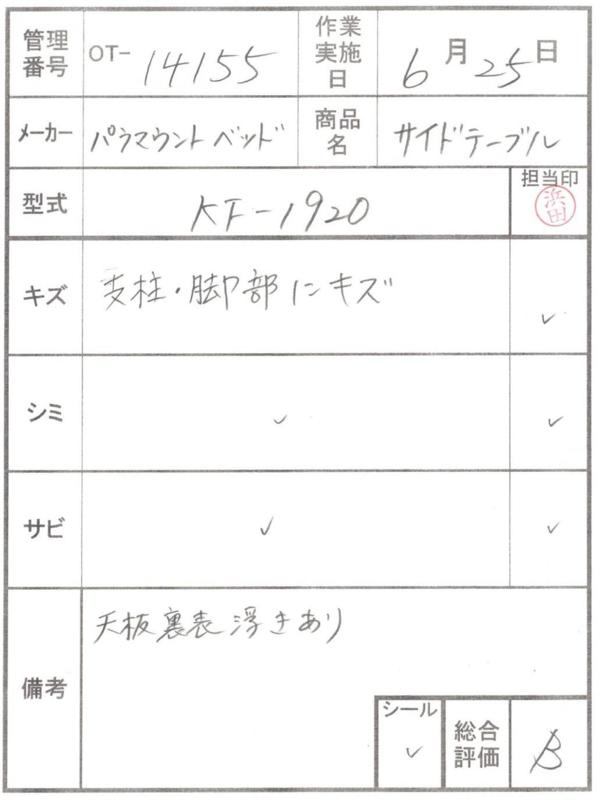 管理番号 OT- 14155 作業実施日 6月25日
メーカー パラマウントベッド 商品名 サイドテーブル
型式 KF-1920 担当印 浜田
キズ 支柱・脚部にキズ ✓
シミ ✓ ✓
サビ ✓ ✓
備考 天板裏表浮きあり
シール ✓ 総合評価 B